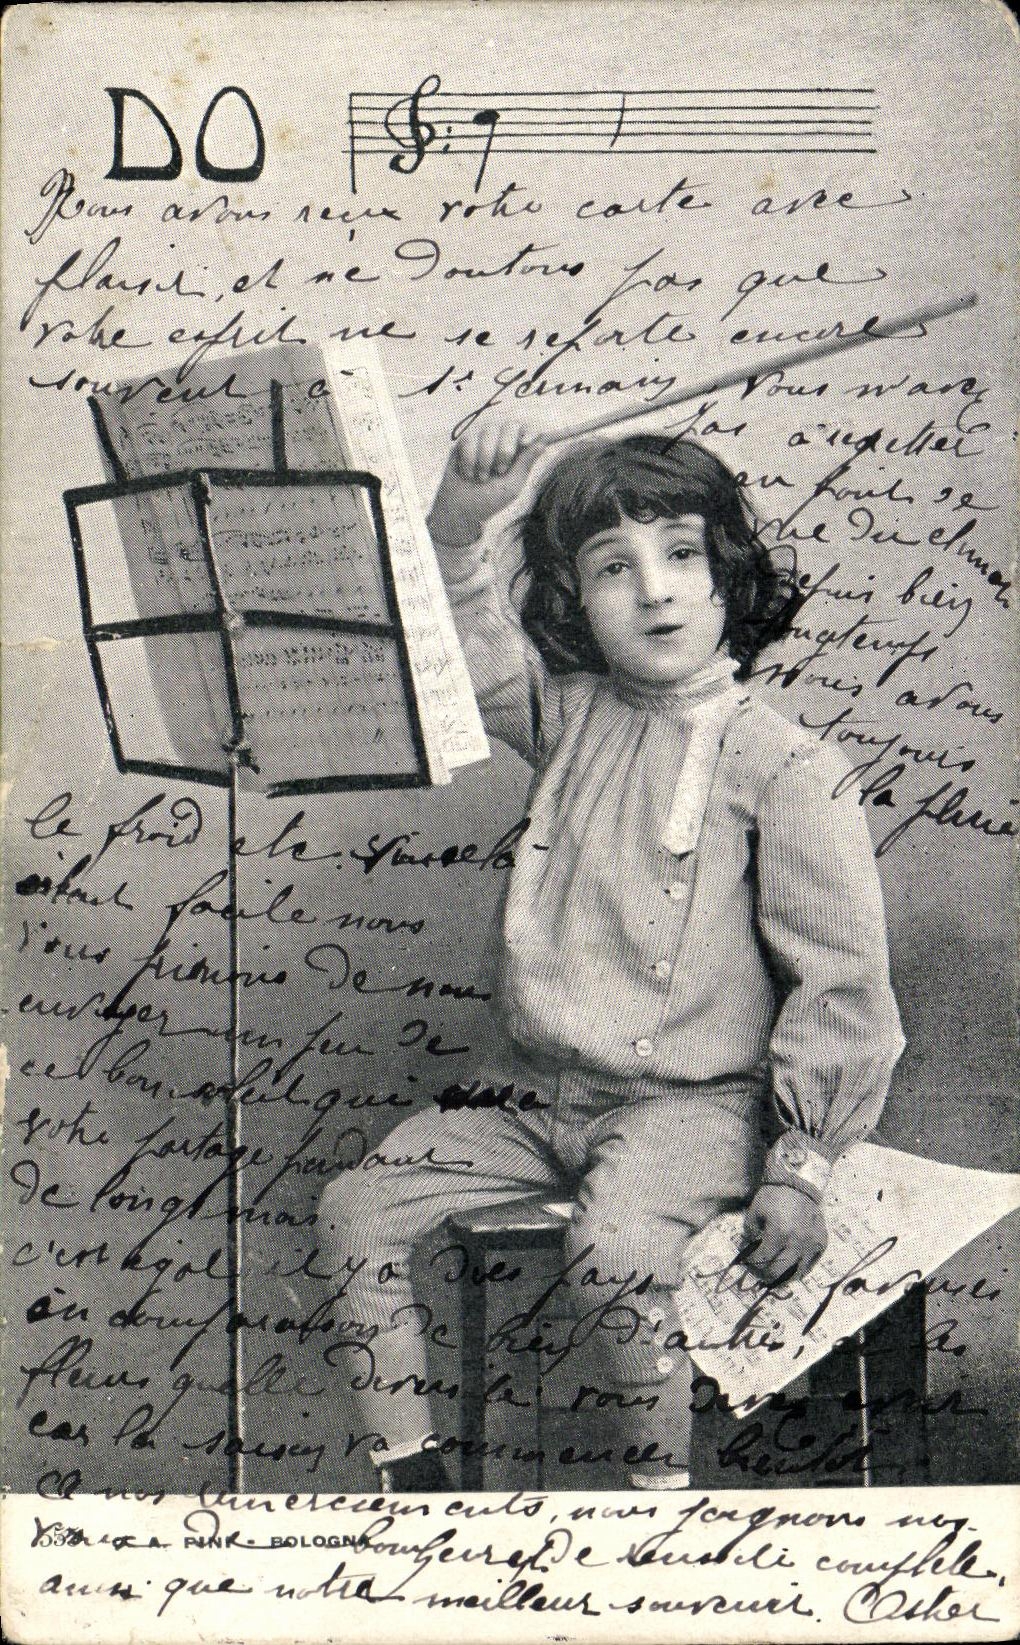 DO
Nous avons reçu votre carte avec
plaisir, et ne doutons pas que
votre esprit ne se reporte encore
souvent à St Germain, vous n'avez
pas à regretter
en tout de
vue du climat
Depuis bien
longtemps
nous avons
toujours
la pluie
le froid etc. Si cela
était facile nous
vous prierions de nous
envoyer un peu de
ce bon soleil qui
votre partage pendant
de longs mois.
c'est égal il y a des pays trop favorisés
en comparaison de bien d'autres, et les
fleurs quelle diversité vous devez avoir
car la saison va commencer bientôt.
A nos remerciements, nous joignons nos
vœux de bonheur et de réussite complète,
ainsi que notre meilleur souvenir. Asher
A. PINK - BOLOGNA